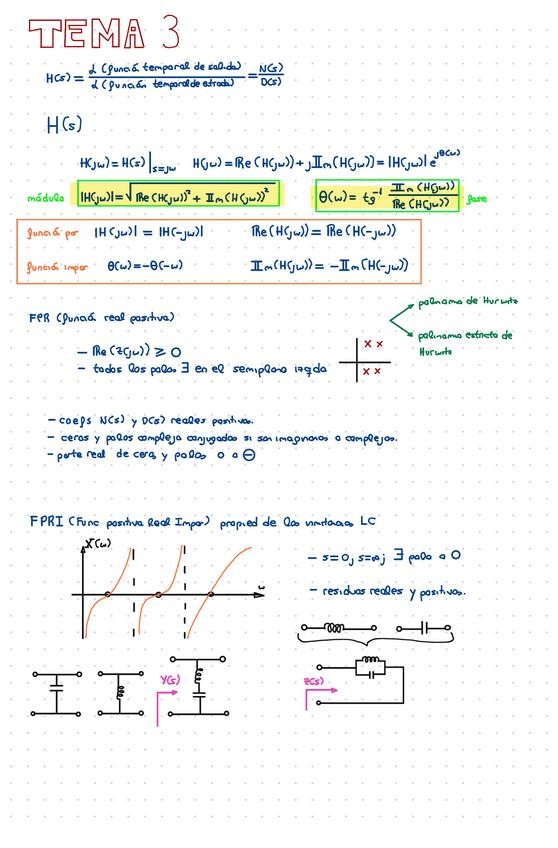 TEMA 3
H(s) = L (función temporal de salida) / L (función temporal de etrada) = N(s) / D(s)
H(s)
H(jω) = H(s) |s=jω H(jω) = Re (H(jω)) + j Im (H(jω)) = |H(jω)| e^jθ(ω)
módulo |H(jω)| = √ Re (H(jω))² + Im (H(jω))² θ(ω) = tg⁻¹ Im (H(jω)) / Re (H(jω)) fase
función par |H(jω)| = |H(-jω)| Re (H(jω)) = Re (H(-jω))
función impar θ(ω) = -θ(-ω) Im (H(jω)) = -Im (H(-jω))
polinomio de Hurwitz
FPR (función real positiva)
polinomio estricto de
Hurwitz
- Re (Z(jω)) ≥ 0
- todos los polos ∃ en el semiplano izqdo
x x
x x
- coefs N(s) y D(s) reales positivos.
- ceros y polos complejo conjugados si son imaginarios o complejos.
- parte real de ceros y polos 0 o ⊖
FPRI (Func positiva Real Impar) propied de las inmitancias LC
X(ω)
ω
- s=0, s=∞, ∃ polo o 0
- residuos reales y positivos.
Y(s)
Z(s)